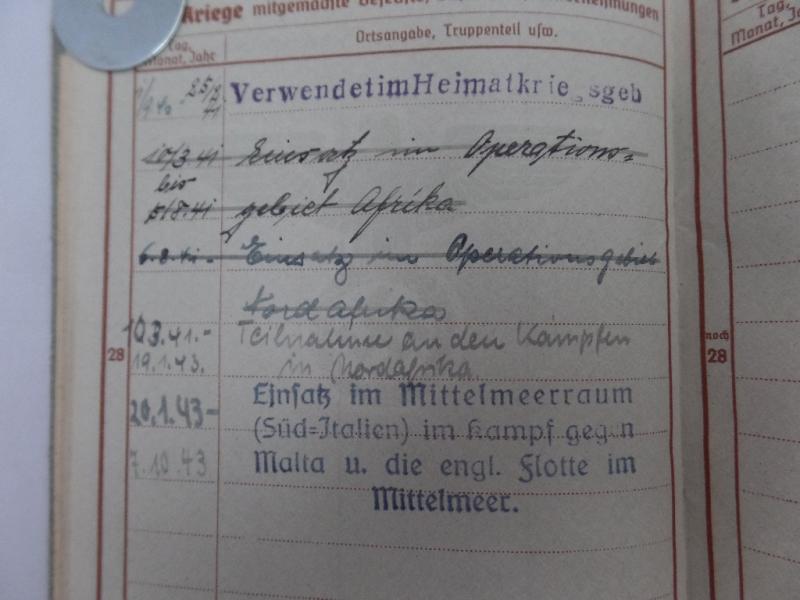 Kriege mitgemachte Gefechte,
Tag, Monat, Jahr
Ortsangabe, Truppenteil usw.
Tag, Monat, Jahr
25/2 41 Verwendet im Heimatkriegsgeb
10/3 41 Einsatz im Operations=
bis
5/8.41 gebiet Afrika
6.8.41.- Einsatz im Operationsgebiet
Nordafrika
10.3.41.- Teilnahme an den Kämpfen
28 19.1.43. in Nordafrika.
noch 28
20.1.43- Einsatz im Mittelmeerraum
(Süd=Italien) im Kampf gegen
7.10.43 Malta u. die engl. Flotte im
Mittelmeer.